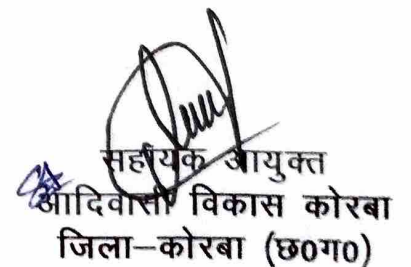 सहायक आयुक्त
आदिवासी विकास कोरबा
जिला–कोरबा (छ0ग0)